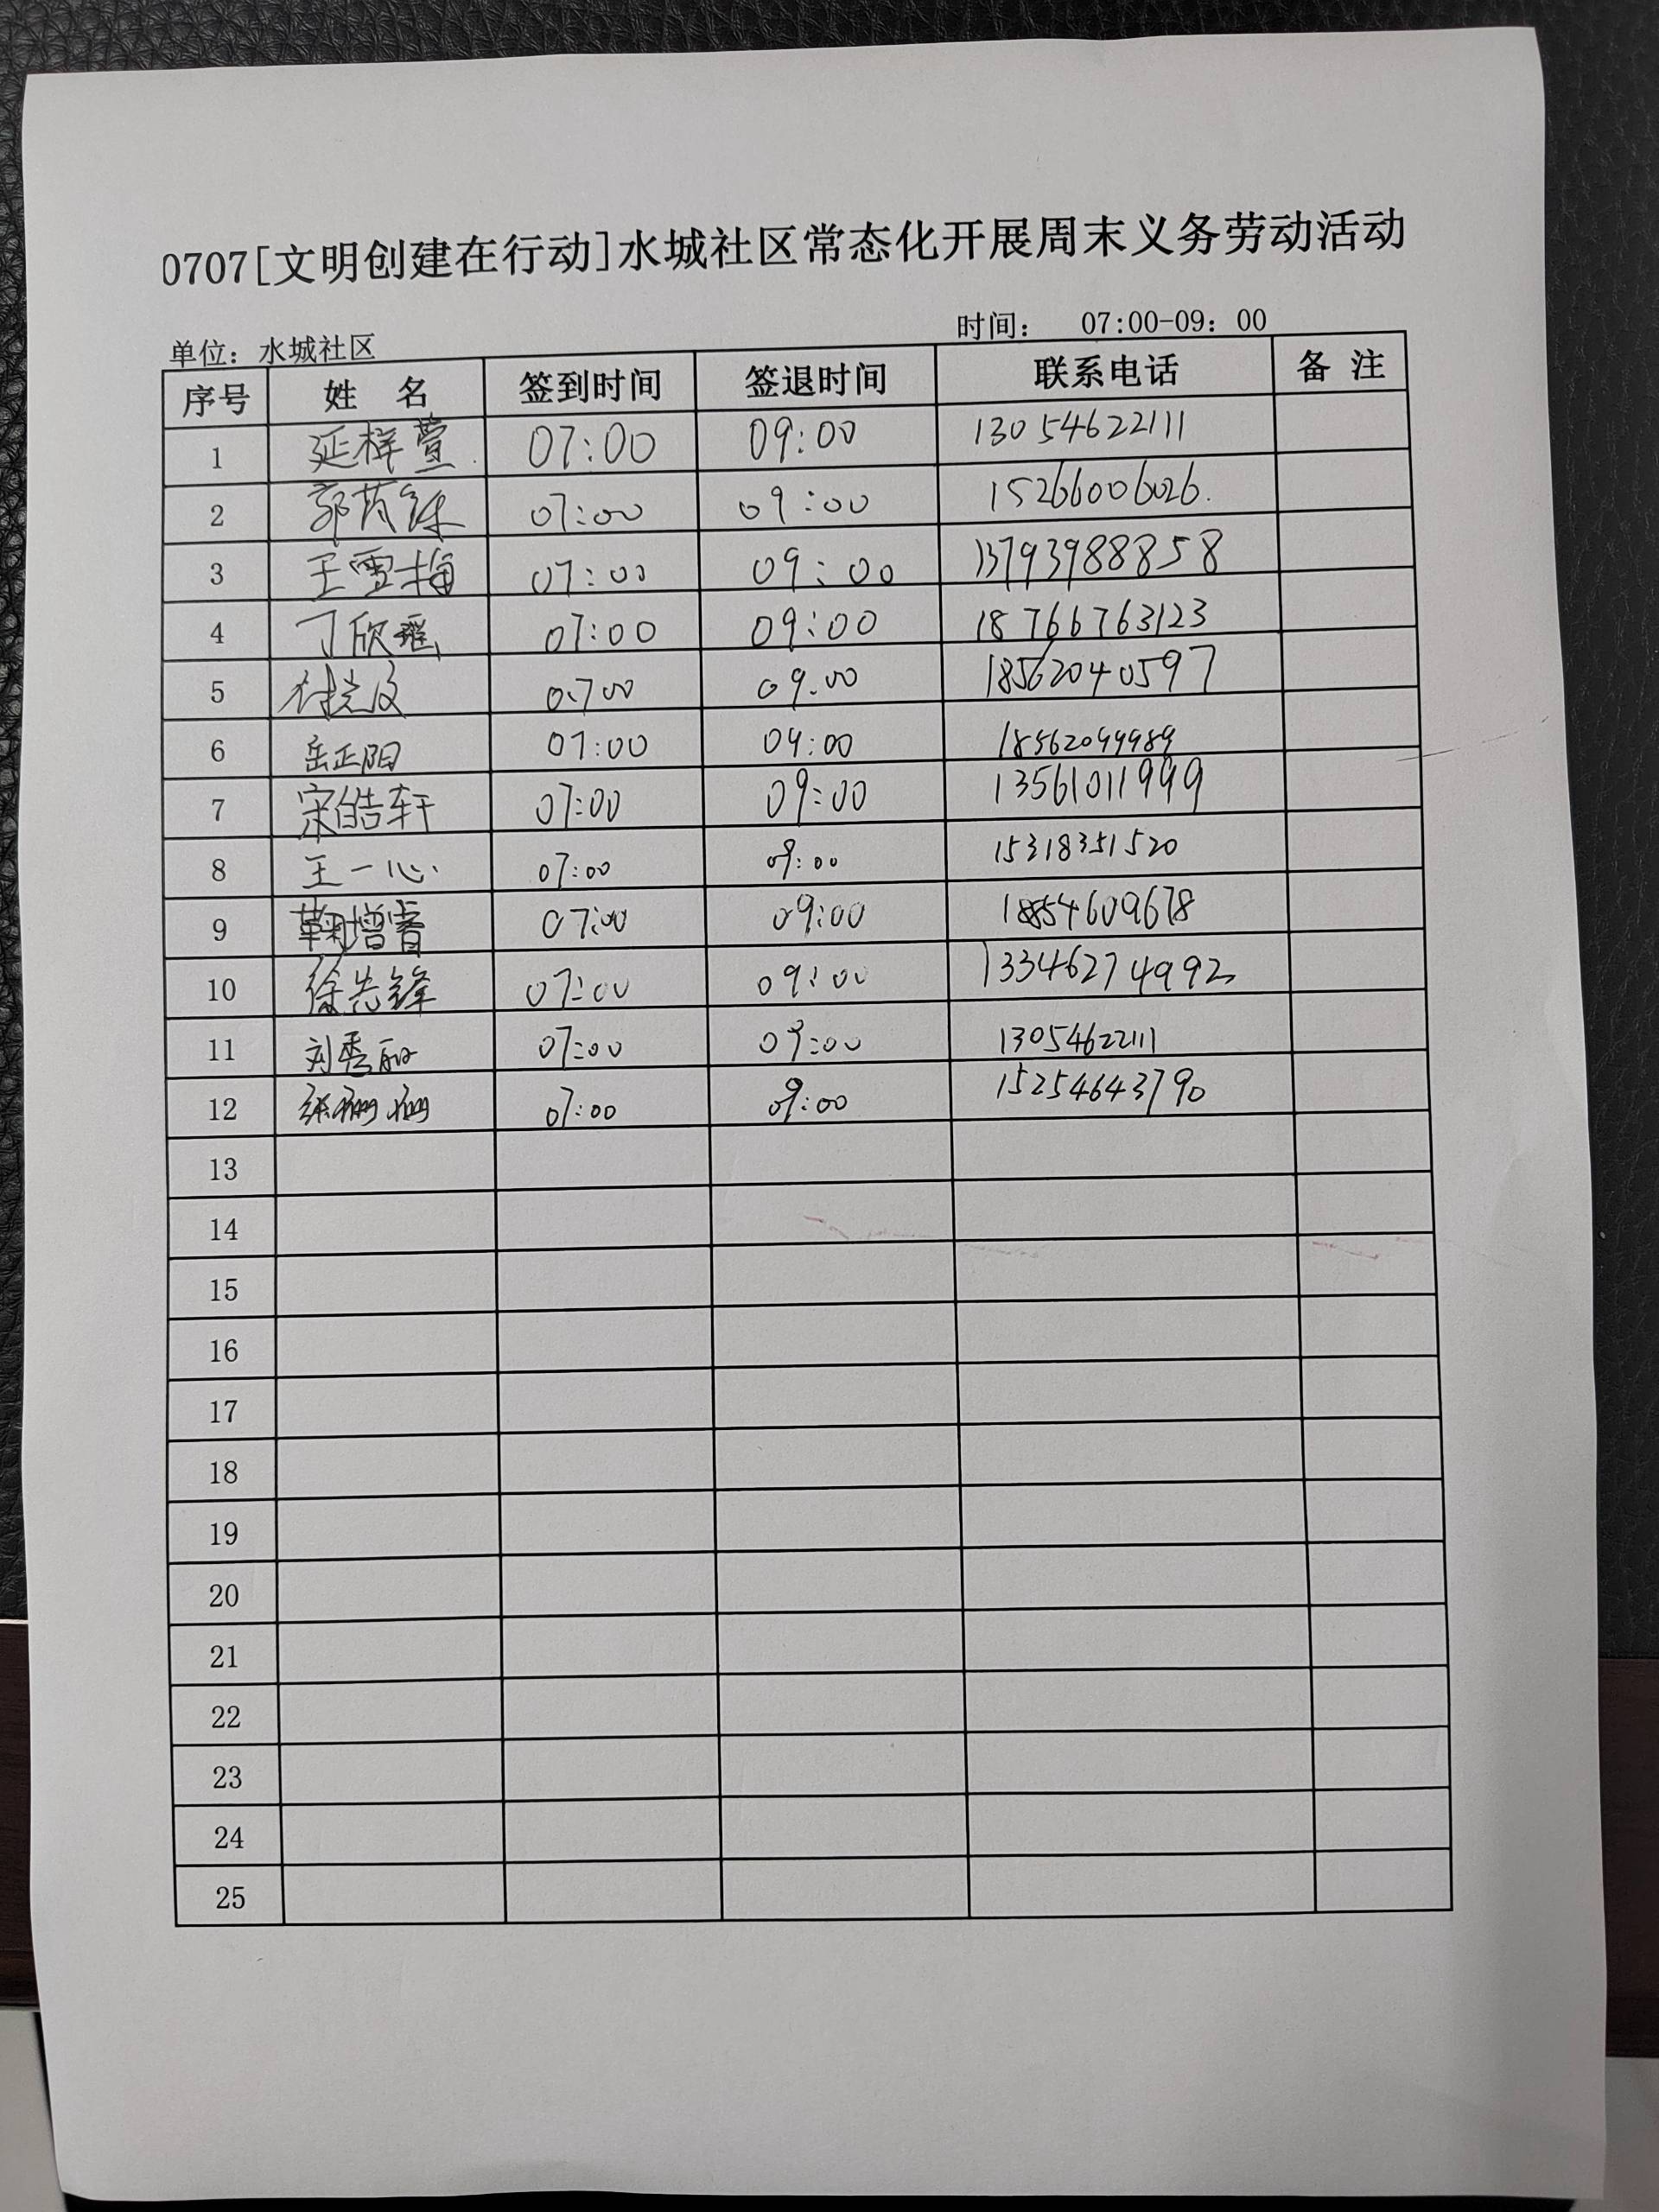 0707[文明创建在行动]水城社区常态化开展周末义务劳动活动
单位：水城社区 时间： 07:00-09：00
序号 姓 名 签到时间 签退时间 联系电话 备 注
1 延梓萱 07:00 09:00 13054622111
2 郭芮 07:00 09:00 15266006026.
3 王雪梅 07:00 09:00 13793988858
4 丁欣瑶 07:00 09:00 18766763123
5 0700 09.00 18562040597
6 岳正阳 07:00 09:00 18562099989
7 宋皓轩 07:00 09:00 13561011999
8 王一心 07:00 09:00 15318351520
9 鞠增睿 07:00 09:00 18854609678
10 徐先锋 07:00 09:00 13346274992
11 刘秀丽 07:00 09:00 13054622111
12 张姗姗 07:00 09:00 15254643790
13
14
15
16
17
18
19
20
21
22
23
24
25